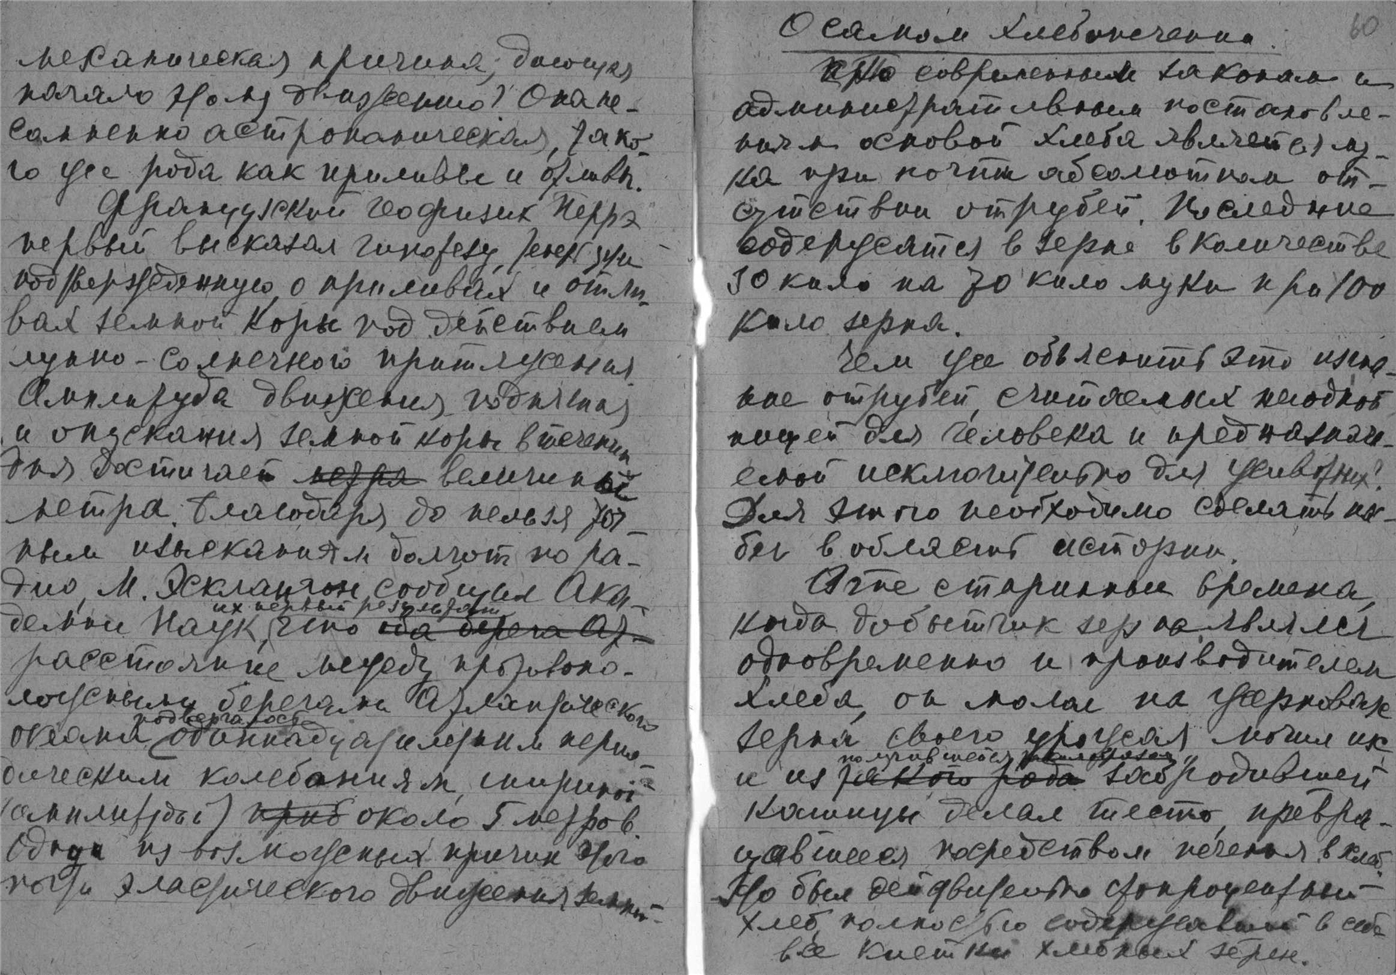 механическая причина, дающая
начало этому движению? Она не-
сомненно астрономическая, тако-
го же рода как приливы и отливы.
Французский геофизик Перрэ
первый высказал гипотезу,
подтвержденную, о приливах и отли-
вах земной коры под действием
лунно-солнечного притяжения
Амплитуда движения поднятия
и опускания земной коры в течении
дня достигает метра величины
метра. Благодаря до нельзя точ-
ным изысканиям долгот по ра-
дио, М. Эсклангон сообщил Ака-
их первый результат
демии Наук, что оба берега Ат-
расстояние между противопо-
ложными берегами Атлантического
подвергалось
океана одиннадцатилетним перио-
дическим колебаниям, шириной
(амплитуды) около 5 метров.
Одна из возможных причин этого
почти эластического движения земной
60
О самом хлебопечении.
По современным законам и
административным постановле-
ниям основой хлеба является му-
ка при почти абсолютном от-
сутствии отрубей. Последние
содержатся в зерне в количестве
30 кило на 70 кило муки при 100
кило зерна.
Чем же объяснить это изгна-
ние отрубей, считаемых неодноб
пищей для человека и предназначе-
емой исключительно для животных?
Для этого необходимо сделать на-
бег в область истории.
В те старинные времена,
когда добытчик зерна являлся
одновременно и производителем
хлеба, он молол на жерновах
зерна своего урожая, мочил их
получившейся
и из такого рода забродившей
кашицы делал тесто, превра-
щавшееся посредством печения в хлеб.
Это был действительно стопроцентный
хлеб, полностью содержавший в себе
все клетки хлебных зерен.